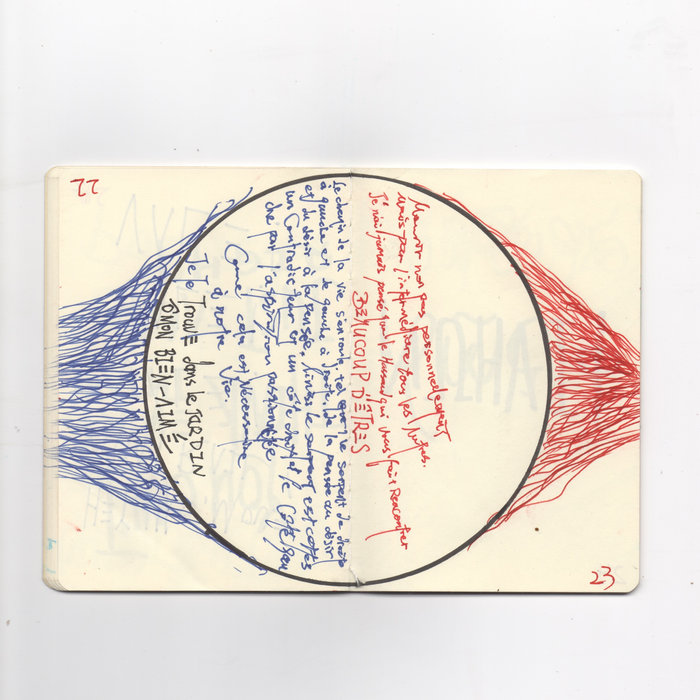 22
Mourir non pas personnellement
mais par l'intermédiaire tous les Autres.
Je n'ai jamais pensé que le Hassard qui vous fait Rencontrer
BEAUCOUP D'ÊTRES
Le chemin de la vie s'enroule tel que le serpent de droite
à gauche et de gauche à droite, de la pensée au désir
et du désir à la pensée. le serpent est certes
un Contradicteur, un côté droit et le Côté gau
che par l'aspiration passionnée
Comme cela est Nécessaire
à notre Vie.
Je te TROUVE dans le JARDIN
Ô MON BIEN-AIMÉ
23